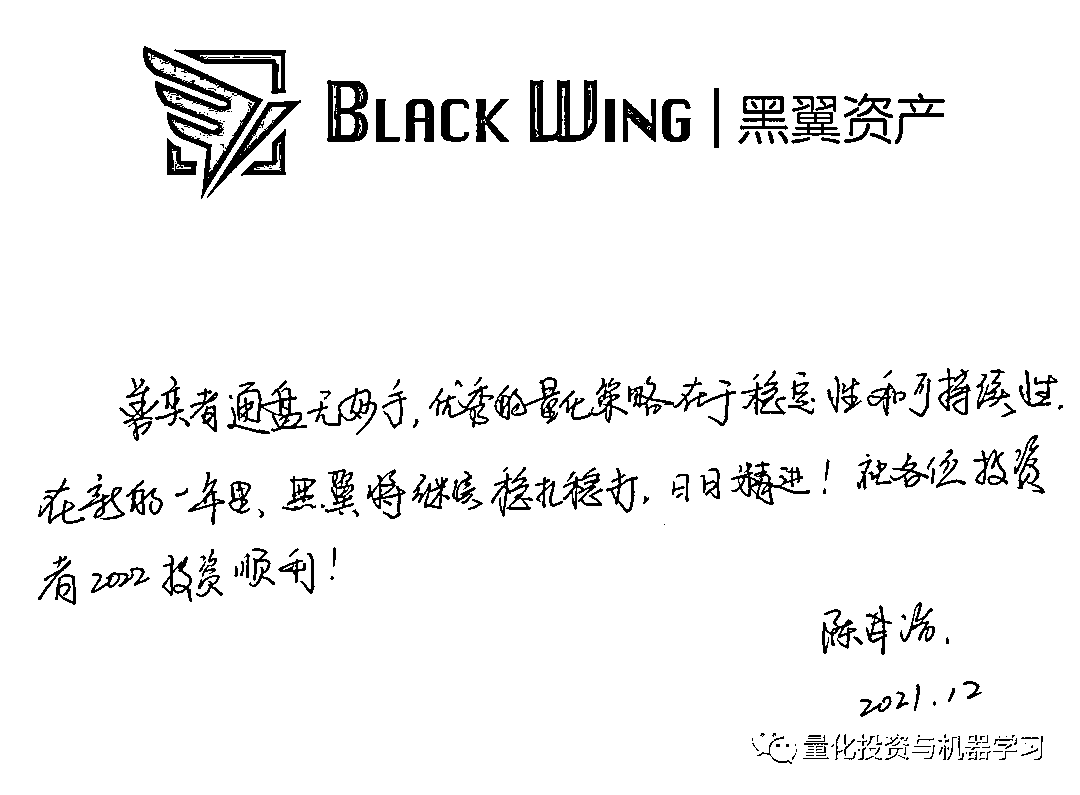 BLACK WING | 黑翼资产
善奕者通盘无妙手,优秀的量化策略在于稳定性和可持续性.
在新的一年里、黑翼将继续稳扎稳打,日日精进!祝各位投资
者2022投资顺利!
陈泽浩.
2021.12
量化投资与机器学习